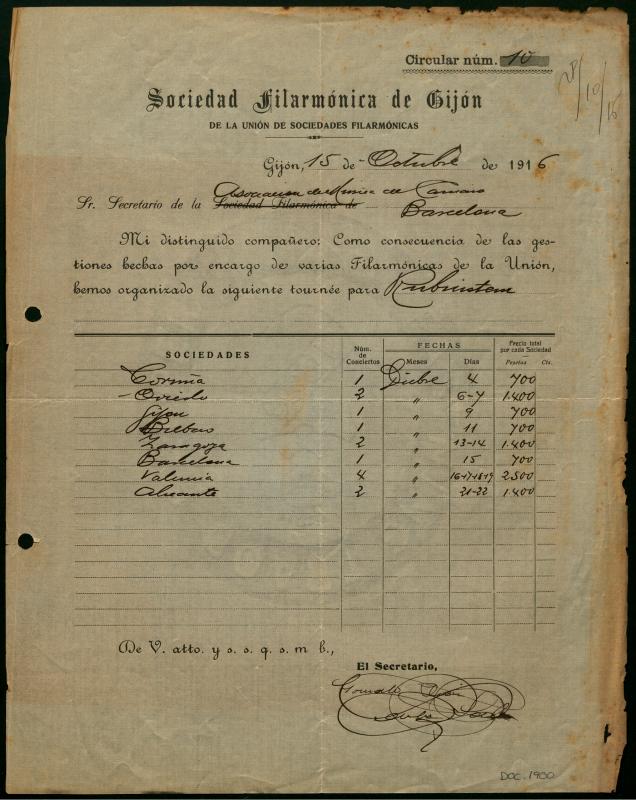 Circular núm. 10
28/10/16
Sociedad Filarmónica de Gijón
DE LA UNIÓN DE SOCIEDADES FILARMÓNICAS
Gijón, 15 de Octubre de 1916
Asociacion de Musica de Camara
Sr. Secretario de la Sociedad Filarmónica de Barcelona
Mi distinguido compañero: Como consecuencia de las ges-
tiones hechas por encargo de varias Filarmónicas de la Unión,
hemos organizado la siguiente tournée para Rubinstein
SOCIEDADES Núm. de Conciertos FECHAS Meses Días Precio total por cada Sociedad Pesetas Cts.
Coruña 1 Dicbre 4 700
- Oviedo 2 " 6-7 1.400
Gijon 1 " 9 700
Bilbao 1 " 11 700
Zaragoza 2 " 13-14 1.400
Barcelona 1 " 15 700
Valencia 4 " 16-17-18-19 2.500
Alicante 2 " 21-22 1.400
De V. atto. y s. s. q. s. m b.,
El Secretario,
DOC. 1900